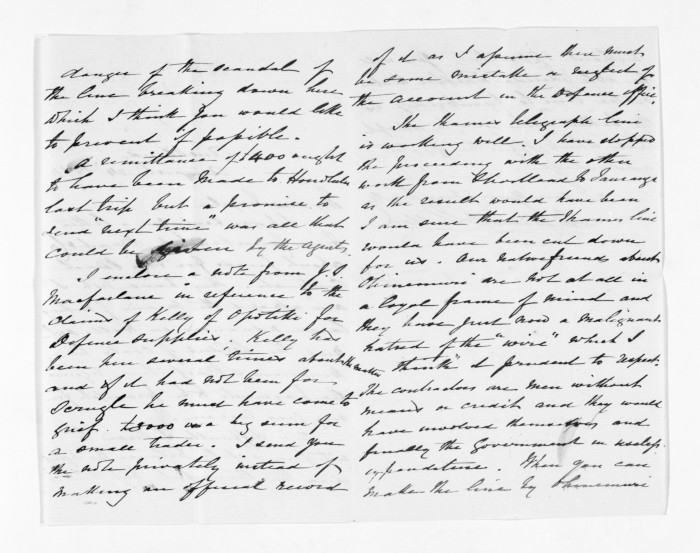 danger of the scandal of
the line breaking down here
which I think you would like
to prevent if possible.
A remittance of £1400 ought
to have been made to Honolulu
last trip but a promise to
send "next time" was all that
could be given by the agents.
I enclose a note from J. S.
Macfarlane in reference to the
claims of Kelly of Opotiki for
Defence supplies. Kelly has
been here several times about the matter
and if it had not been for
Scrugle he must have come to
grief. £3000 is a big sum for
a small trader. I send you
the note privately instead of
making an official record
of it as I assume there must
be some mistake or neglect of
the account in the Defence office.
The Thames telegraph line
is working well. I have stopped
the proceeding with the other
work from Shortland to Tauranga
as the result would have been
I am sure that the Thames line
would have been cut down
for us. Our native friends about
Ohinemuri are not at all in
a loyal frame of mind and
they have just now a malignant
hatred of the "wire" which I
think it prudent to respect.
The contractors are men without
means or credit and they would
have involved themselves and
finally the Government in useless
expenditure. When you can
make the line by Ohinemuri